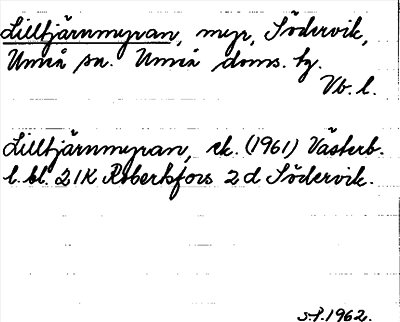 Lilltjärnmyran, myr, Södervik,
Umeå sn. Umeå doms. tg.
Vb. l.
Lilltjärnmyran, ek. (1961) Västerb.
l. bl. 21K Robertsfors 2d Södervik.
S.P. 1962.